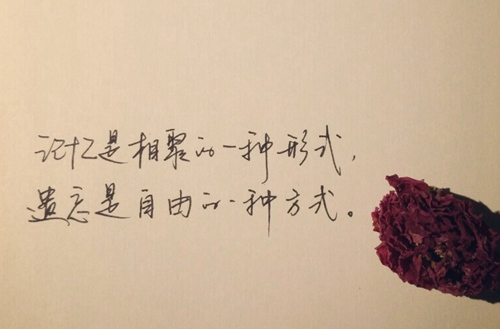 记忆是相聚的一种形式,
遗忘是自由的一种方式。